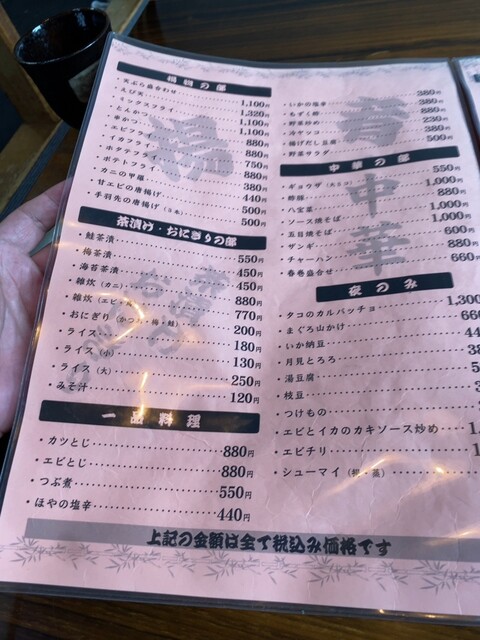 揚物の部
天ぷら盛合わせ 1,100円
えび天 1,100円
ミックスフライ 1,320円
とんかつ 1,100円
串かつ 1,100円
エビフライ 880円
イカフライ
ホタテフライ
ポテトフライ
カニの甲羅 380円
甘エビの唐揚げ 440円
手羽先の唐揚げ(3本) 500円
500円
茶漬け・おにぎりの部
鮭茶漬 550円
梅茶漬 450円
海苔茶漬 450円
雑炊(カニ) 880円
雑炊 770円
おにぎり(かつお・梅・鮭) 200円
ライス 180円
ライス(小) 130円
ライス(大) 250円
みそ汁 120円
一品料理
カツとじ 880円
エビとじ 880円
つぶ煮 550円
ほやの塩辛 440円
いかの塩辛 380円
もずく酢 380円
野菜炒め 880円
冷ヤッコ 230円
揚げだし豆腐 380円
野菜サラダ 500円
中華の部
ギョウザ 550円
酢豚 1,000円
八宝菜 880円
ソース焼そば 1,000円
五目焼そば 1,000円
ザンギ 600円
チャーハン 880円
春巻盛合せ 660円
夜のみ
タコのカルパッチョ 1,300
まぐろ山かけ 660
いか納豆 44
月見とろろ 38
湯豆腐
枝豆
つけもの
エビとイカのカキソース炒め
エビチリ
シューマイ(揚・蒸)
上記の金額は全て税込み価格です